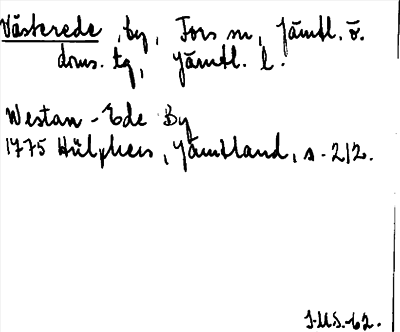 Västerede, by, Fors sn, Jämtl. ö.
doms. tg, Jämtl. l.
Westan-Ede By
1775 Hülphers, Jämtland, s. 212.
J.U.S.-62.